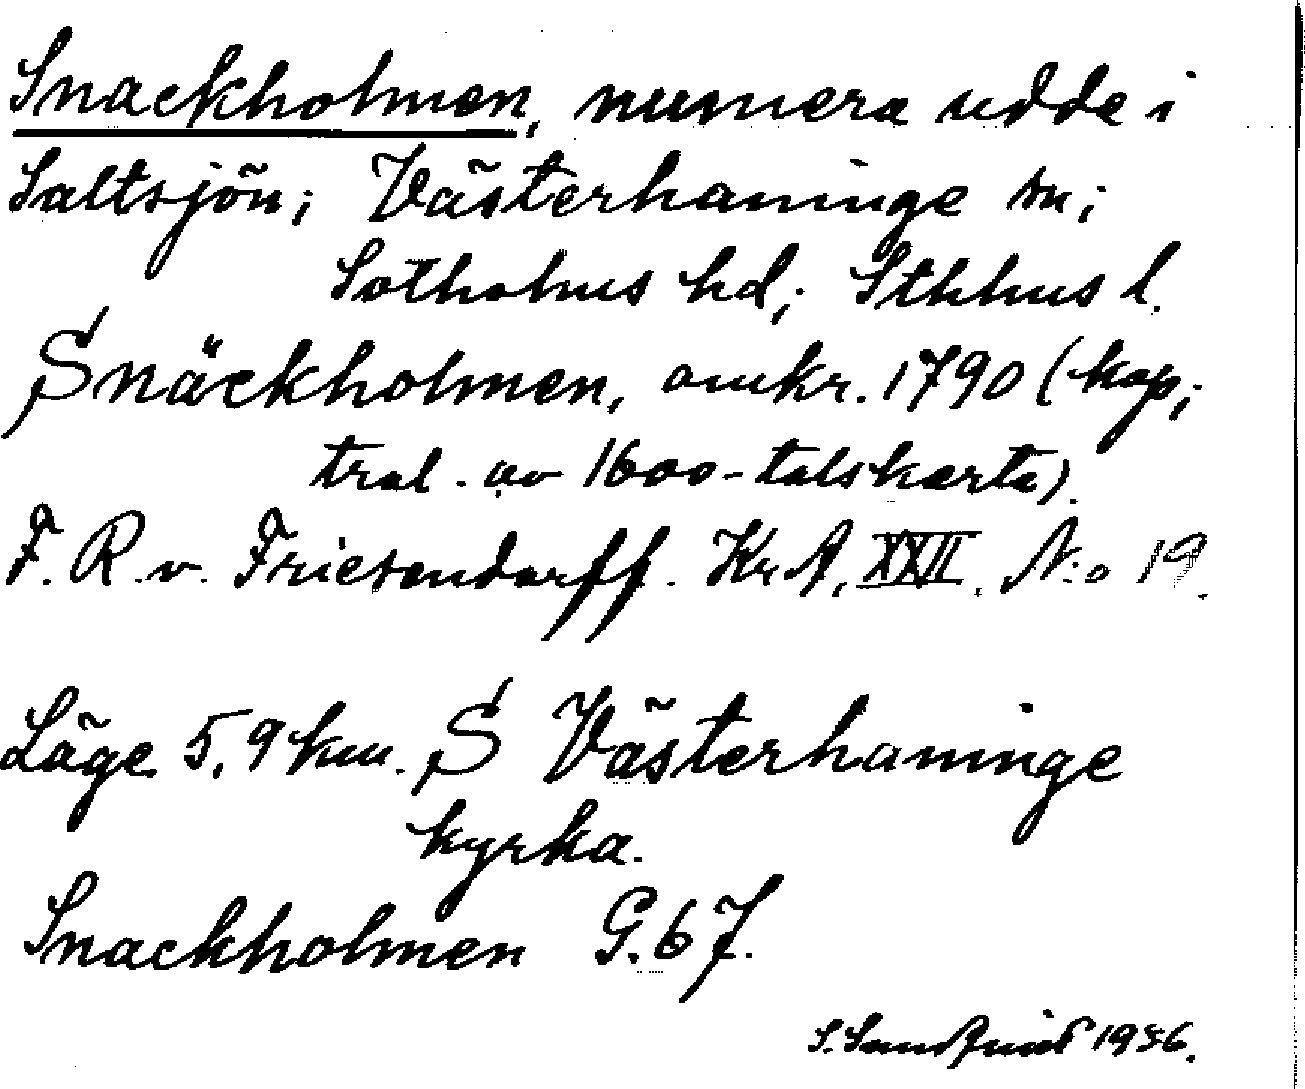 Snackholmen, numera udde i
Saltsjön; Västerhaninge sn;
Sotholms hd; Sthlms l.
Snäckholmen, omkr. 1790 (kop;
tral. av 1600-talskarta).
F. R. v. Friesendorff. KrA, XXII. N:o 19.
Läge 5,9 km. S Västerhaninge
kyrka.
Snackholmen G. 67.
S. Sandquist 1936.